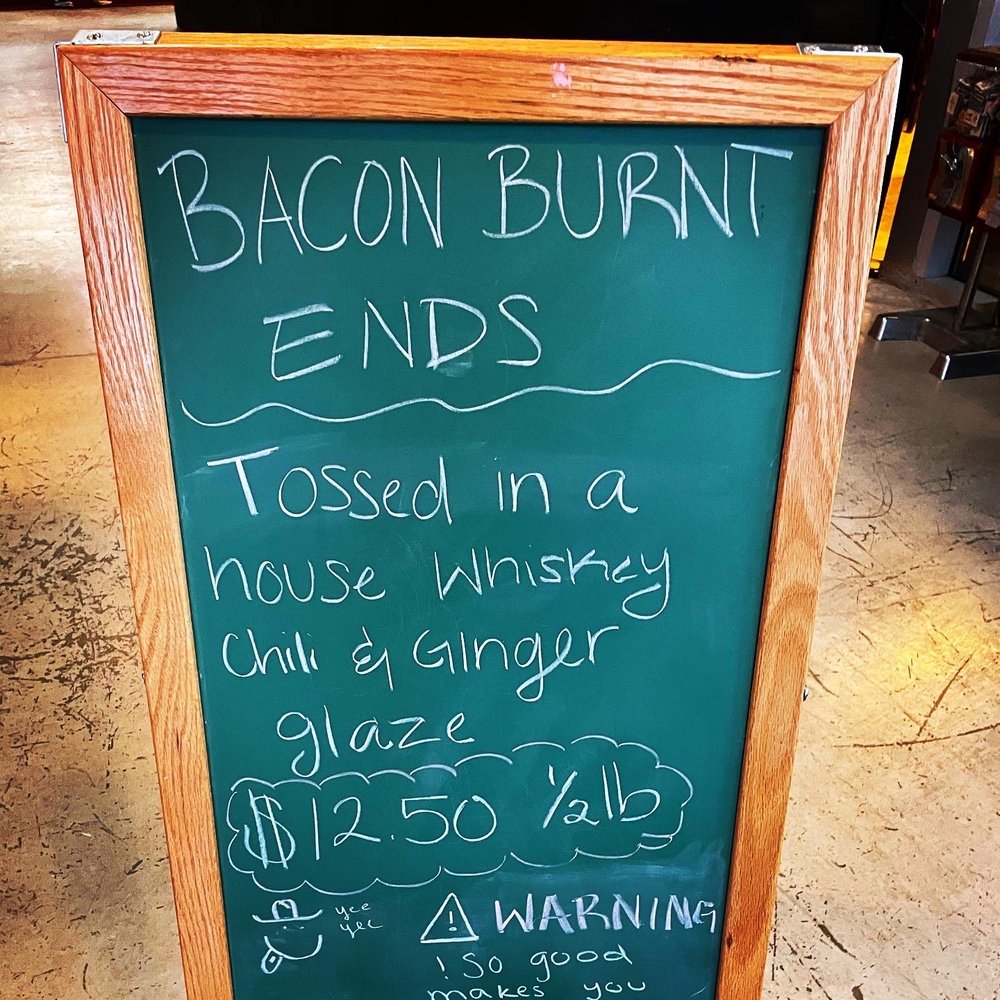 BACON BURNT
ENDS
Tossed in a
house Whiskey
Chili & Ginger
glaze
$12.50 ½ lb
yee
yee
WARNING
! So good
makes you